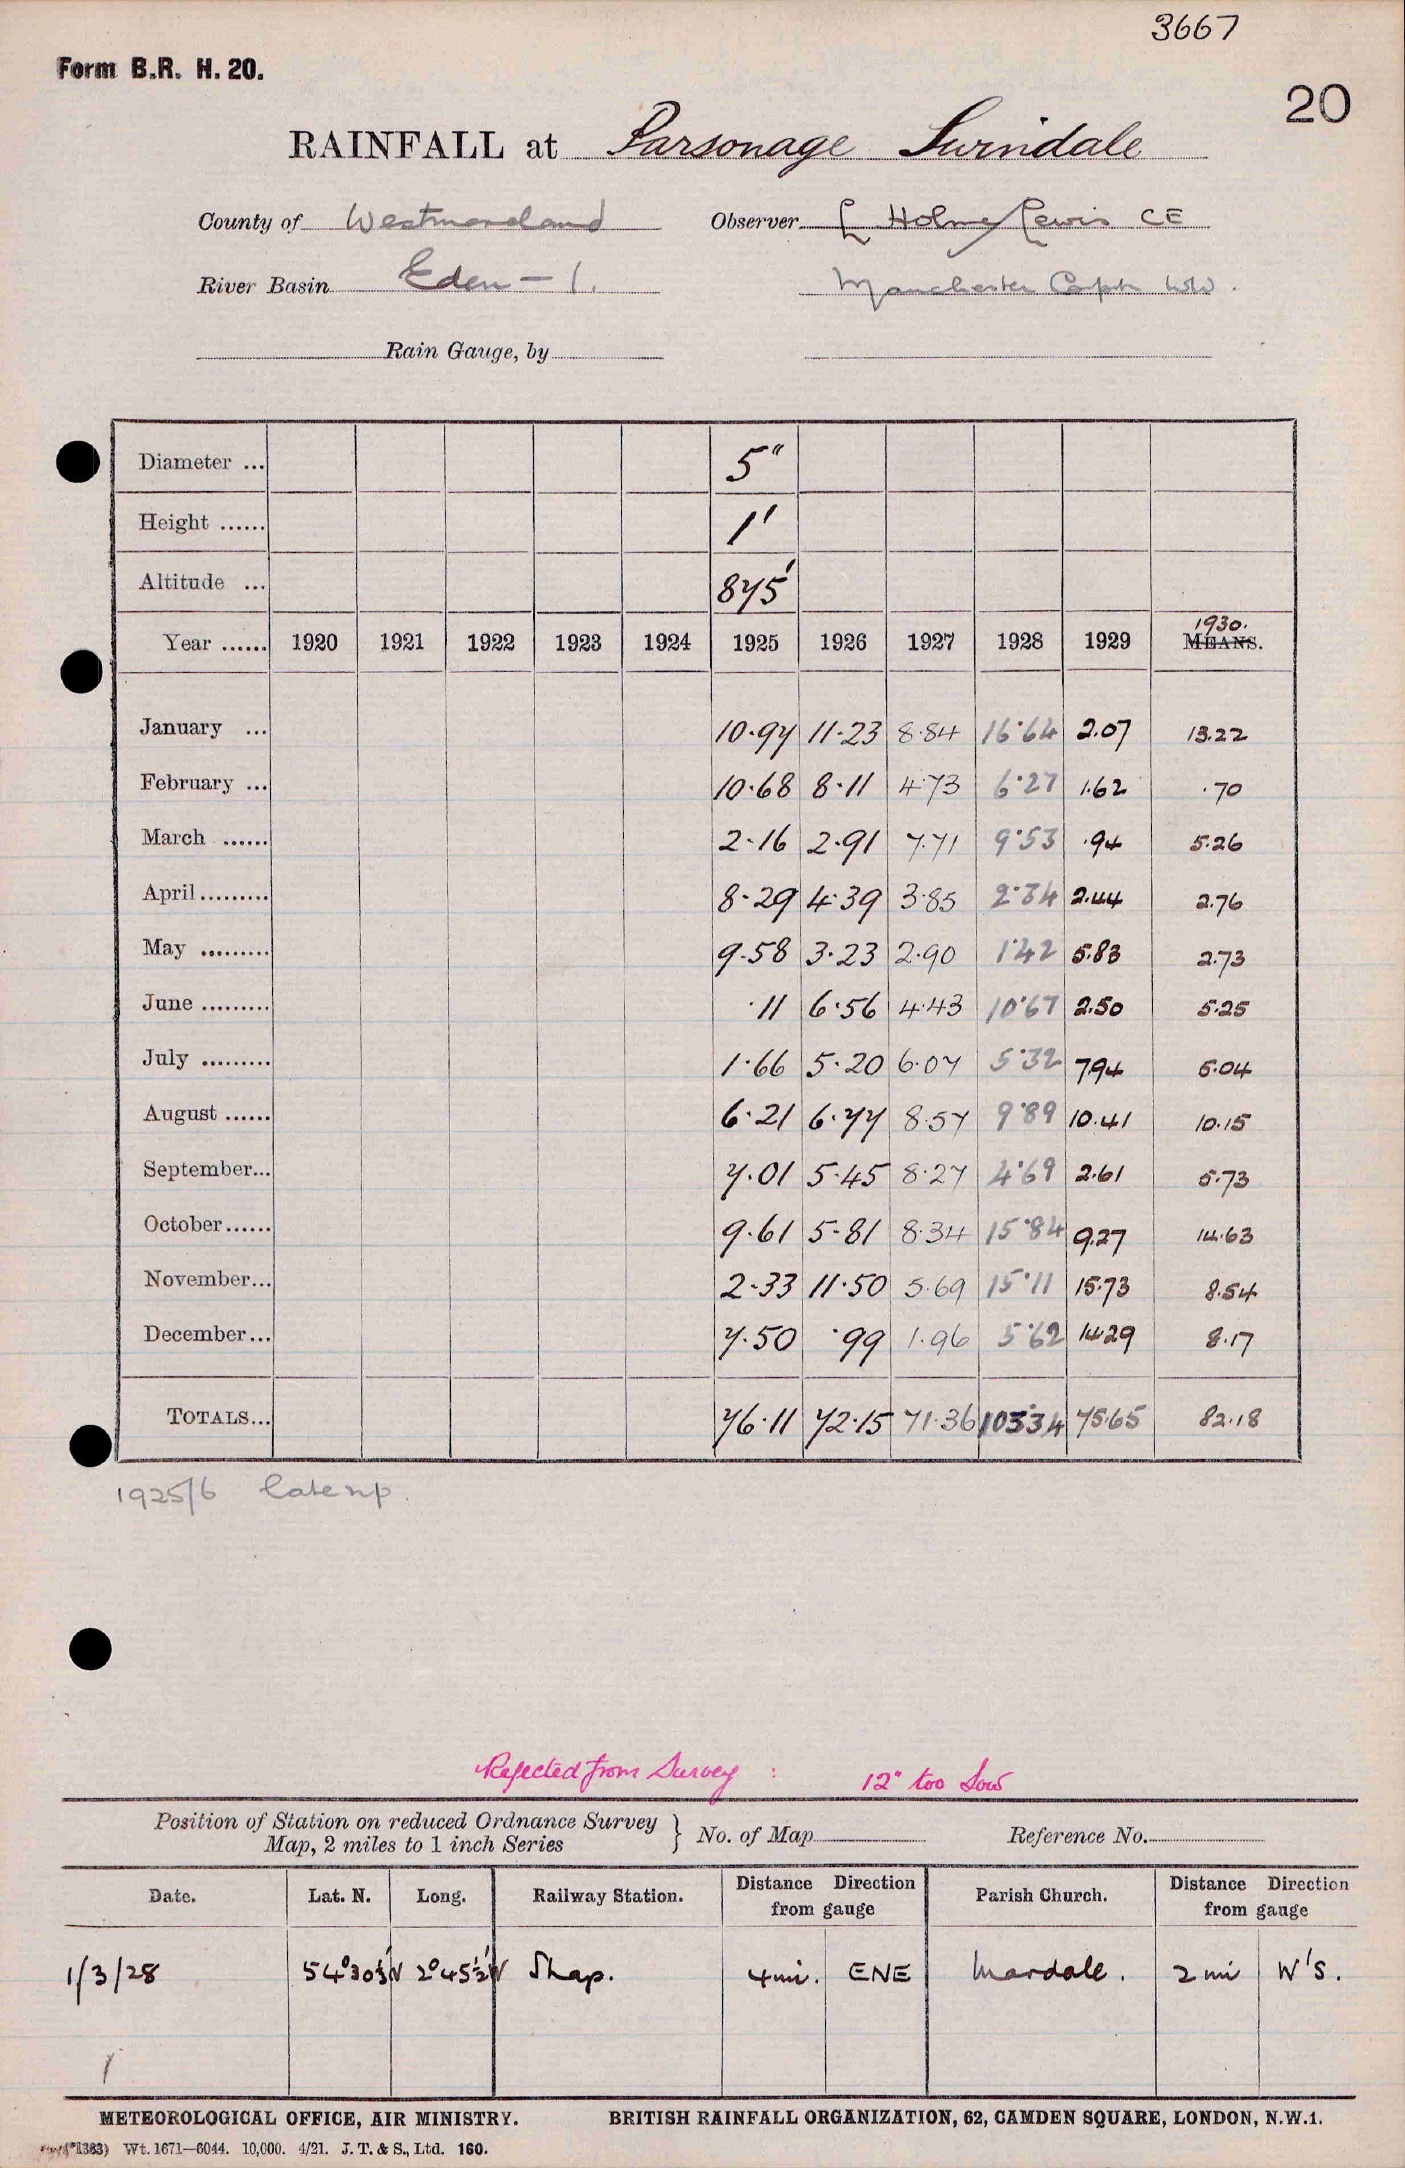 3667
Form B.R. H. 20.
20
RAINFALL at Parsonage Swindale
County of Westmoreland Observer L Holme Lewis CE
River Basin Eden - 1. Manchester Corpn WW.
Rain Gauge, by
Diameter ... 5"
Height ...... 1'
Altitude ... 875'
1930.
Year ...... 1920 1921 1922 1923 1924 1925 1926 1927 1928 1929 MEANS.
January ... 10.97 11.23 8.84 16.64 2.07 13.22
February ... 10.68 8.11 4.73 6.27 1.62 .70
March ...... 2.16 2.91 7.71 9.53 .94 5.26
April ......... 8.29 4.39 3.85 2.34 2.44 2.76
May ......... 9.58 3.23 2.90 1.42 5.83 2.73
June ......... .11 6.56 4.43 10.67 2.50 5.25
July ......... 1.66 5.20 6.07 5.32 7.94 5.04
August ...... 6.21 6.77 8.57 9.89 10.41 10.15
September... 7.01 5.45 8.27 4.69 2.61 5.73
October...... 9.61 5.81 8.34 15.84 9.27 14.63
November... 2.33 11.50 5.69 15.11 15.73 8.54
December... 7.50 .99 1.96 5.62 14.29 8.17
TOTALS... 76.11 72.15 71.36 103.34 75.65 82.18
1925/6 late up.
Rejected from Survey : 12" too low
Position of Station on reduced Ordnance Survey
Map, 2 miles to 1 inch Series } No. of Map Reference No.
Date. Lat. N. Long. Railway Station. Distance from gauge Direction Parish Church. Distance from gauge Direction
1/3/28 54°30½'N 2°45½'W Shap. 4 mi. ENE Mardale. 2 mi W'S.
METEOROLOGICAL OFFICE, AIR MINISTRY. BRITISH RAINFALL ORGANIZATION, 62, CAMDEN SQUARE, LONDON, N.W.1.
(*1383) Wt. 1671—6044. 10,000. 4/21. J. T. & S., Ltd. 160.